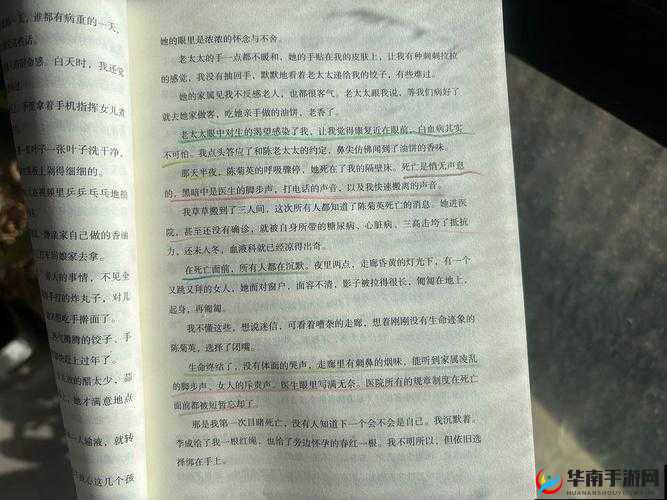 天，谁都有病重的一天，
她的眼里是浓浓的怀念与不舍。
老太太的手一点都不暖和，她的手贴在我的皮肤上，让我有种刺刺拉拉
的感觉，我没有抽回手，默默地看着老太太递给我的饺子，有些难过。
她的家属见我不反感老人，也都很客气。老太太跟我说，等我们病好了
就去她家做客，吃她亲手做的油饼，老香了。
老太太眼中对生的渴望感染了我，让我觉得康复近在眼前，白血病其实
不可怕。我点头答应了和陈老太太的约定，鼻尖仿佛闻到了油饼的香味。
那天半夜，陈菊英的呼吸骤停，她死在了我的隔壁床。死亡是悄无声息
的，黑暗中是医生的脚步声，打电话的声音，以及我快速搬离的声音。
我草草搬到了三人间，这次所有人都知道了陈菊英死亡的消息。她进医
院，甚至还没有确诊，就被自身所带的糖尿病、心脏病、三高击垮了抵抗
力，还未入冬，血液科就已经凉得出奇。
在死亡面前，所有人都在沉默。夜里两点，走廊昏黄的灯光下，有一个
又跳又拜的女人，她面对窗户，面容不清，影子被拉得很长，匍匐在地上，
起身，再匍匐。
我不懂这些，想说迷信，可看着嘈杂的走廊，想着刚刚没有生命迹象的
陈菊英，选择了闭嘴。
生命终结了，没有体面的哭声，走廊里有刺鼻的烟味，能听到家属凌乱
的脚步声、女人的斥责声。医生眼里写满无奈。医院所有的规章制度在死亡
面前都被短暂忘却了。
那是我第一次目睹死亡，没有人知道下一个会不会是自己。我沉默着。
李成给了我一根红绳，也给了旁边怀孕的春红一根。我不明所以，但依旧选
择绑在手上。
说话。
命感。白天时，我还觉
手里拿着手机指挥女儿煮
一张叶子一张叶子洗干净，
剁得细细的。
视频里乒乒乓乓地指
亲家自己做的香油
的娘家去拿。
天的事情，不见全
手打的炸丸子，对儿
想吃手擀面了。
腾腾的饺子、手
快趁上过年了。
放的醋太少，蒜
她才满意地点
人输液，就转
心这几个孩
华南手游网
HUANANSHOUYOUWANG